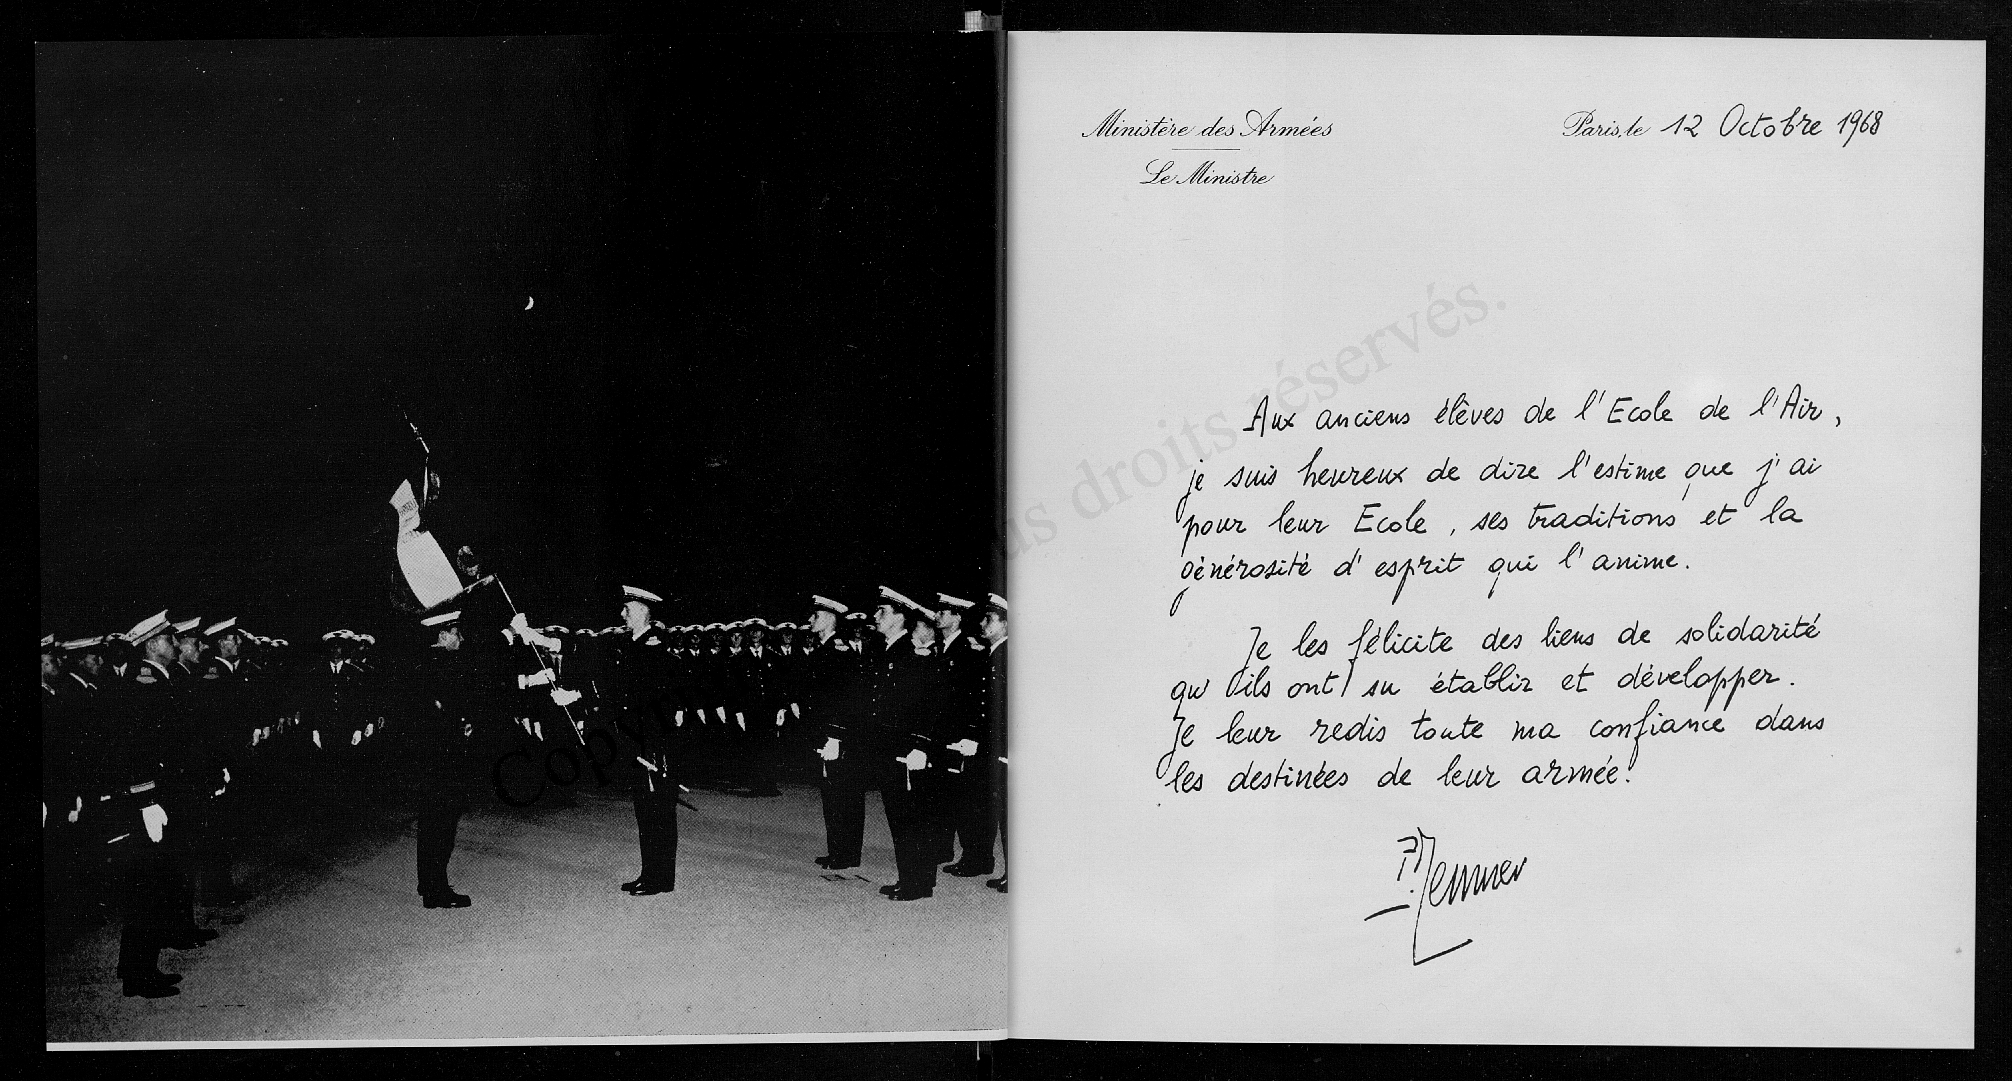 Ministère des Armées
Le Ministre
Paris, le 12 Octobre 1968
Aux anciens élèves de l'Ecole de l'Air,
je suis heureux de dire l'estime que j'ai
pour leur Ecole, ses traditions et la
générosité d'esprit qui l'anime.
Je les félicite des liens de solidarité
qu'ils ont su établir et développer.
Je leur redis toute ma confiance dans
les destinées de leur armée.
droits réservés.